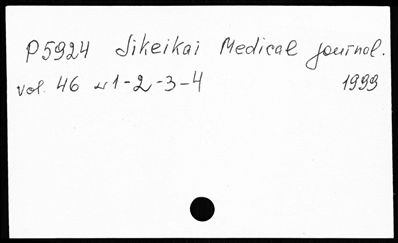 P5924 Jikeikai Medical journal.
vol. 46 N 1-2-3-4 1999